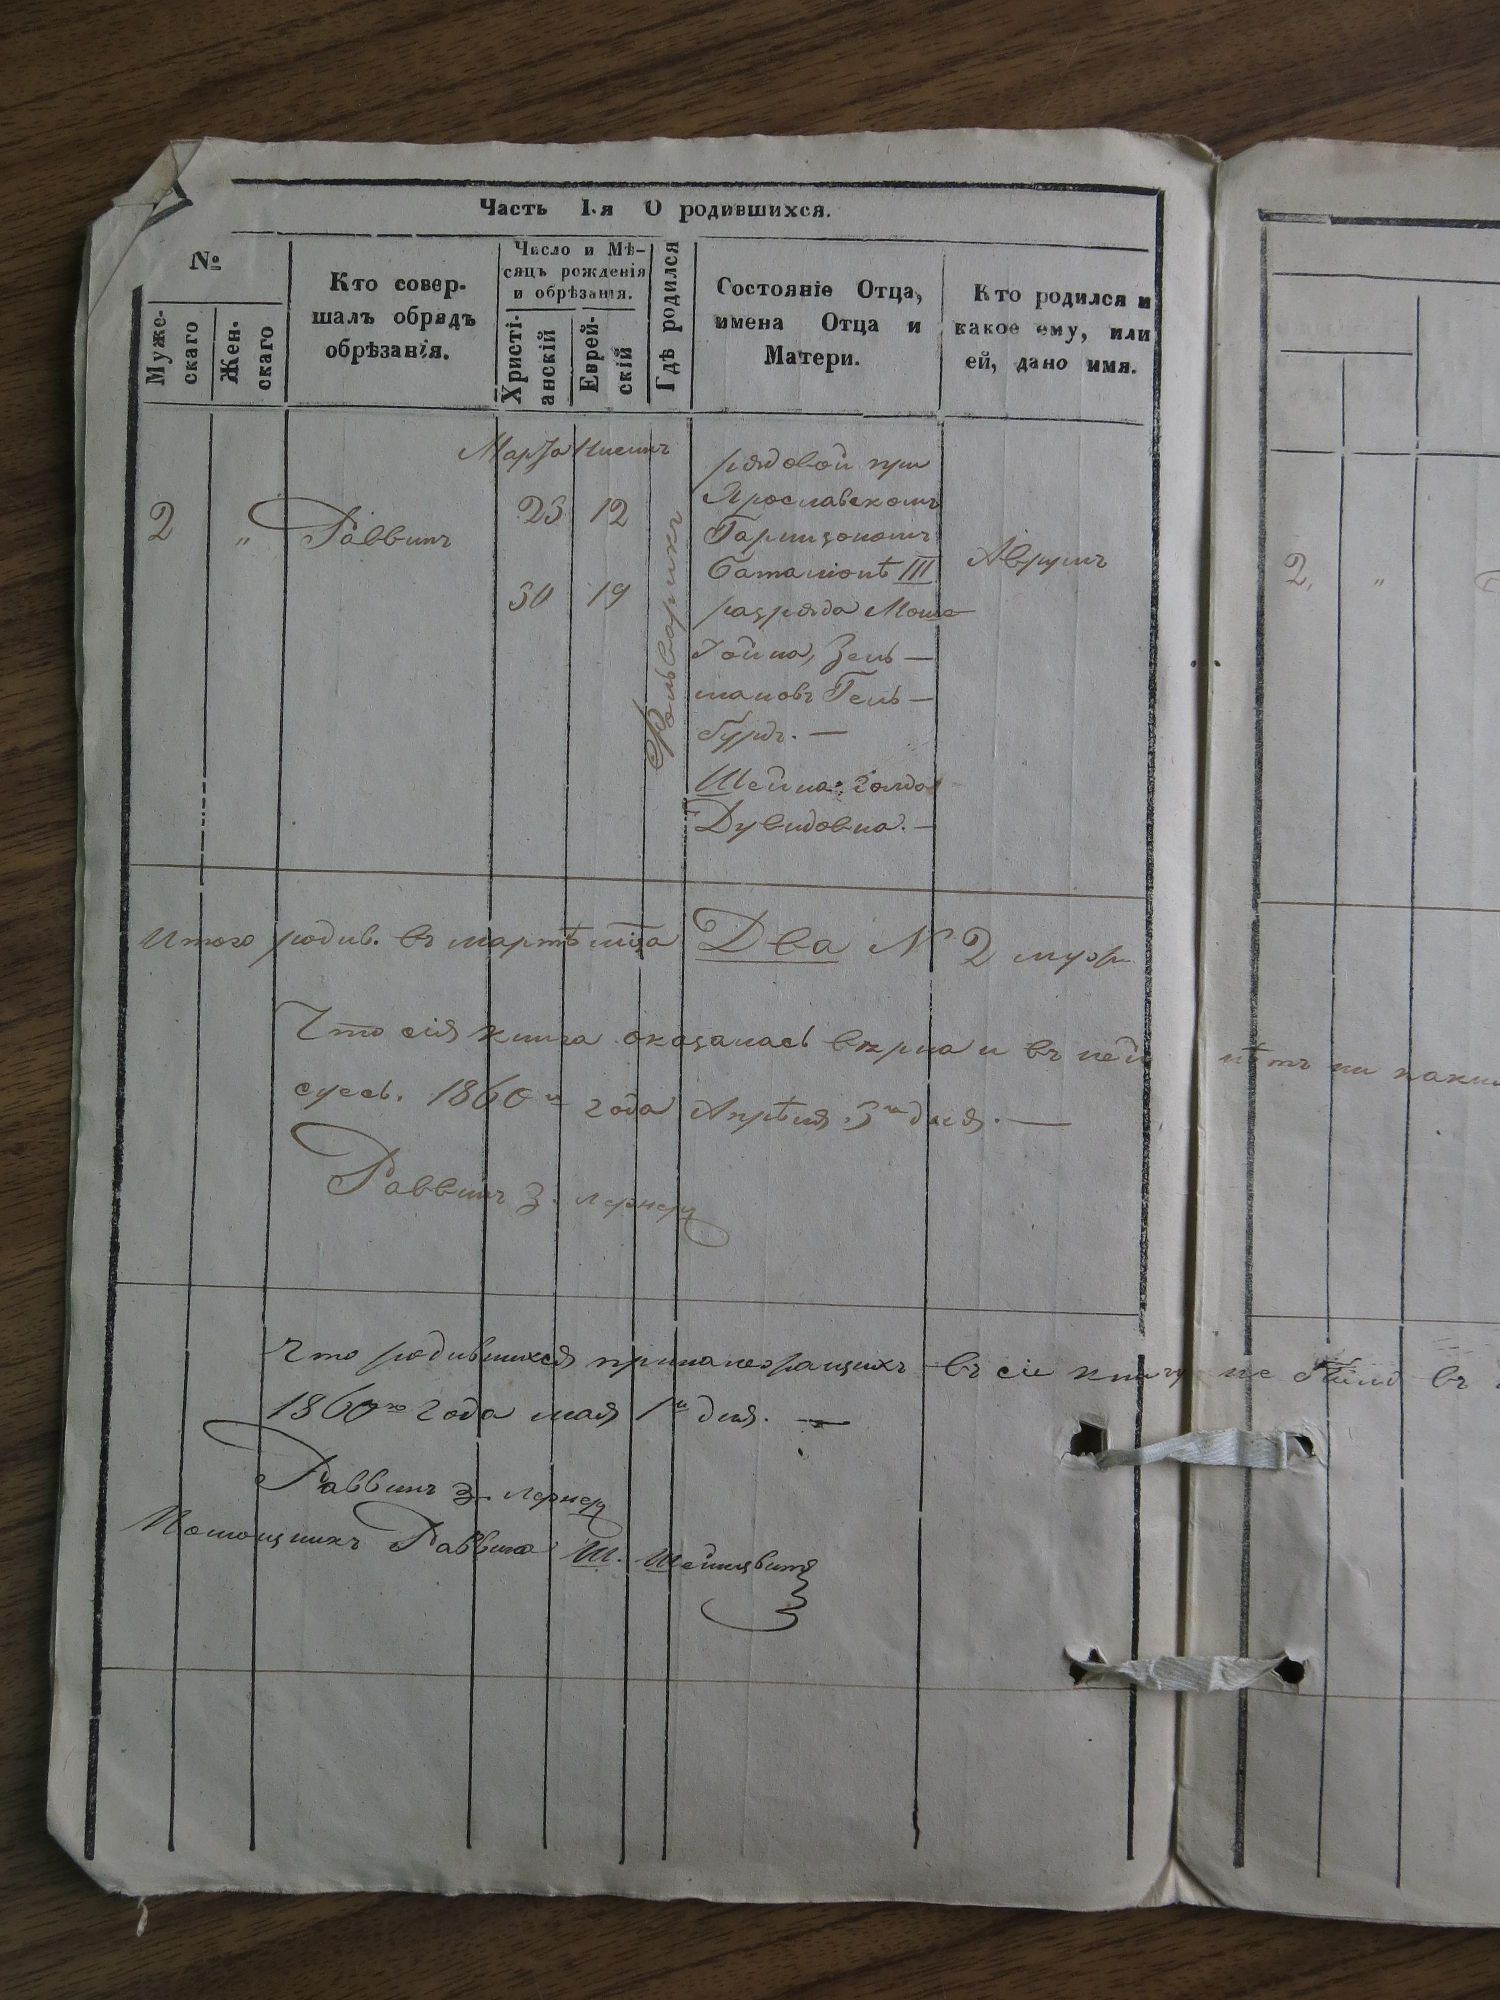 Часть I-я О родившихся.
№
Муже-
скаго
Жен-
скаго
Кто совер-
шалъ обрядъ
обрѣзанія.
Число и Мѣ-
сяцъ рожденія
и обрѣзанія.
Христі-
анскій
Еврей-
скій
Гдѣ родился
Состояніе Отца,
имена Отца и
Матери.
Кто родился и
какое ему, или
ей, дано имя.
Марта Нисинъ
2 " Раввинъ
23 12
30 19
Фольварикъ
рядовой при
Ярославскомъ
Гарнизономъ
баталіонѣ III
разряда Мошко
Хойна, Зель—
мановъ Гель—
бурдъ. —
Шейна Голда
Дувидовна. —
Аврумъ
2, "
Итого родив. въ мартѣ мца Два № 2 муж
Что сія книга оказалась вѣрна и въ ней нѣтъ ни каких
1860го года Апрѣля 3го дня. —
Раввинъ З. Лернеръ
Что родившихся принадлежащихъ въ сіе книгу не было въ
1860го года мая 1го дня. —
Раввинъ З. Лернеръ
Помощникъ Раввина Ш.